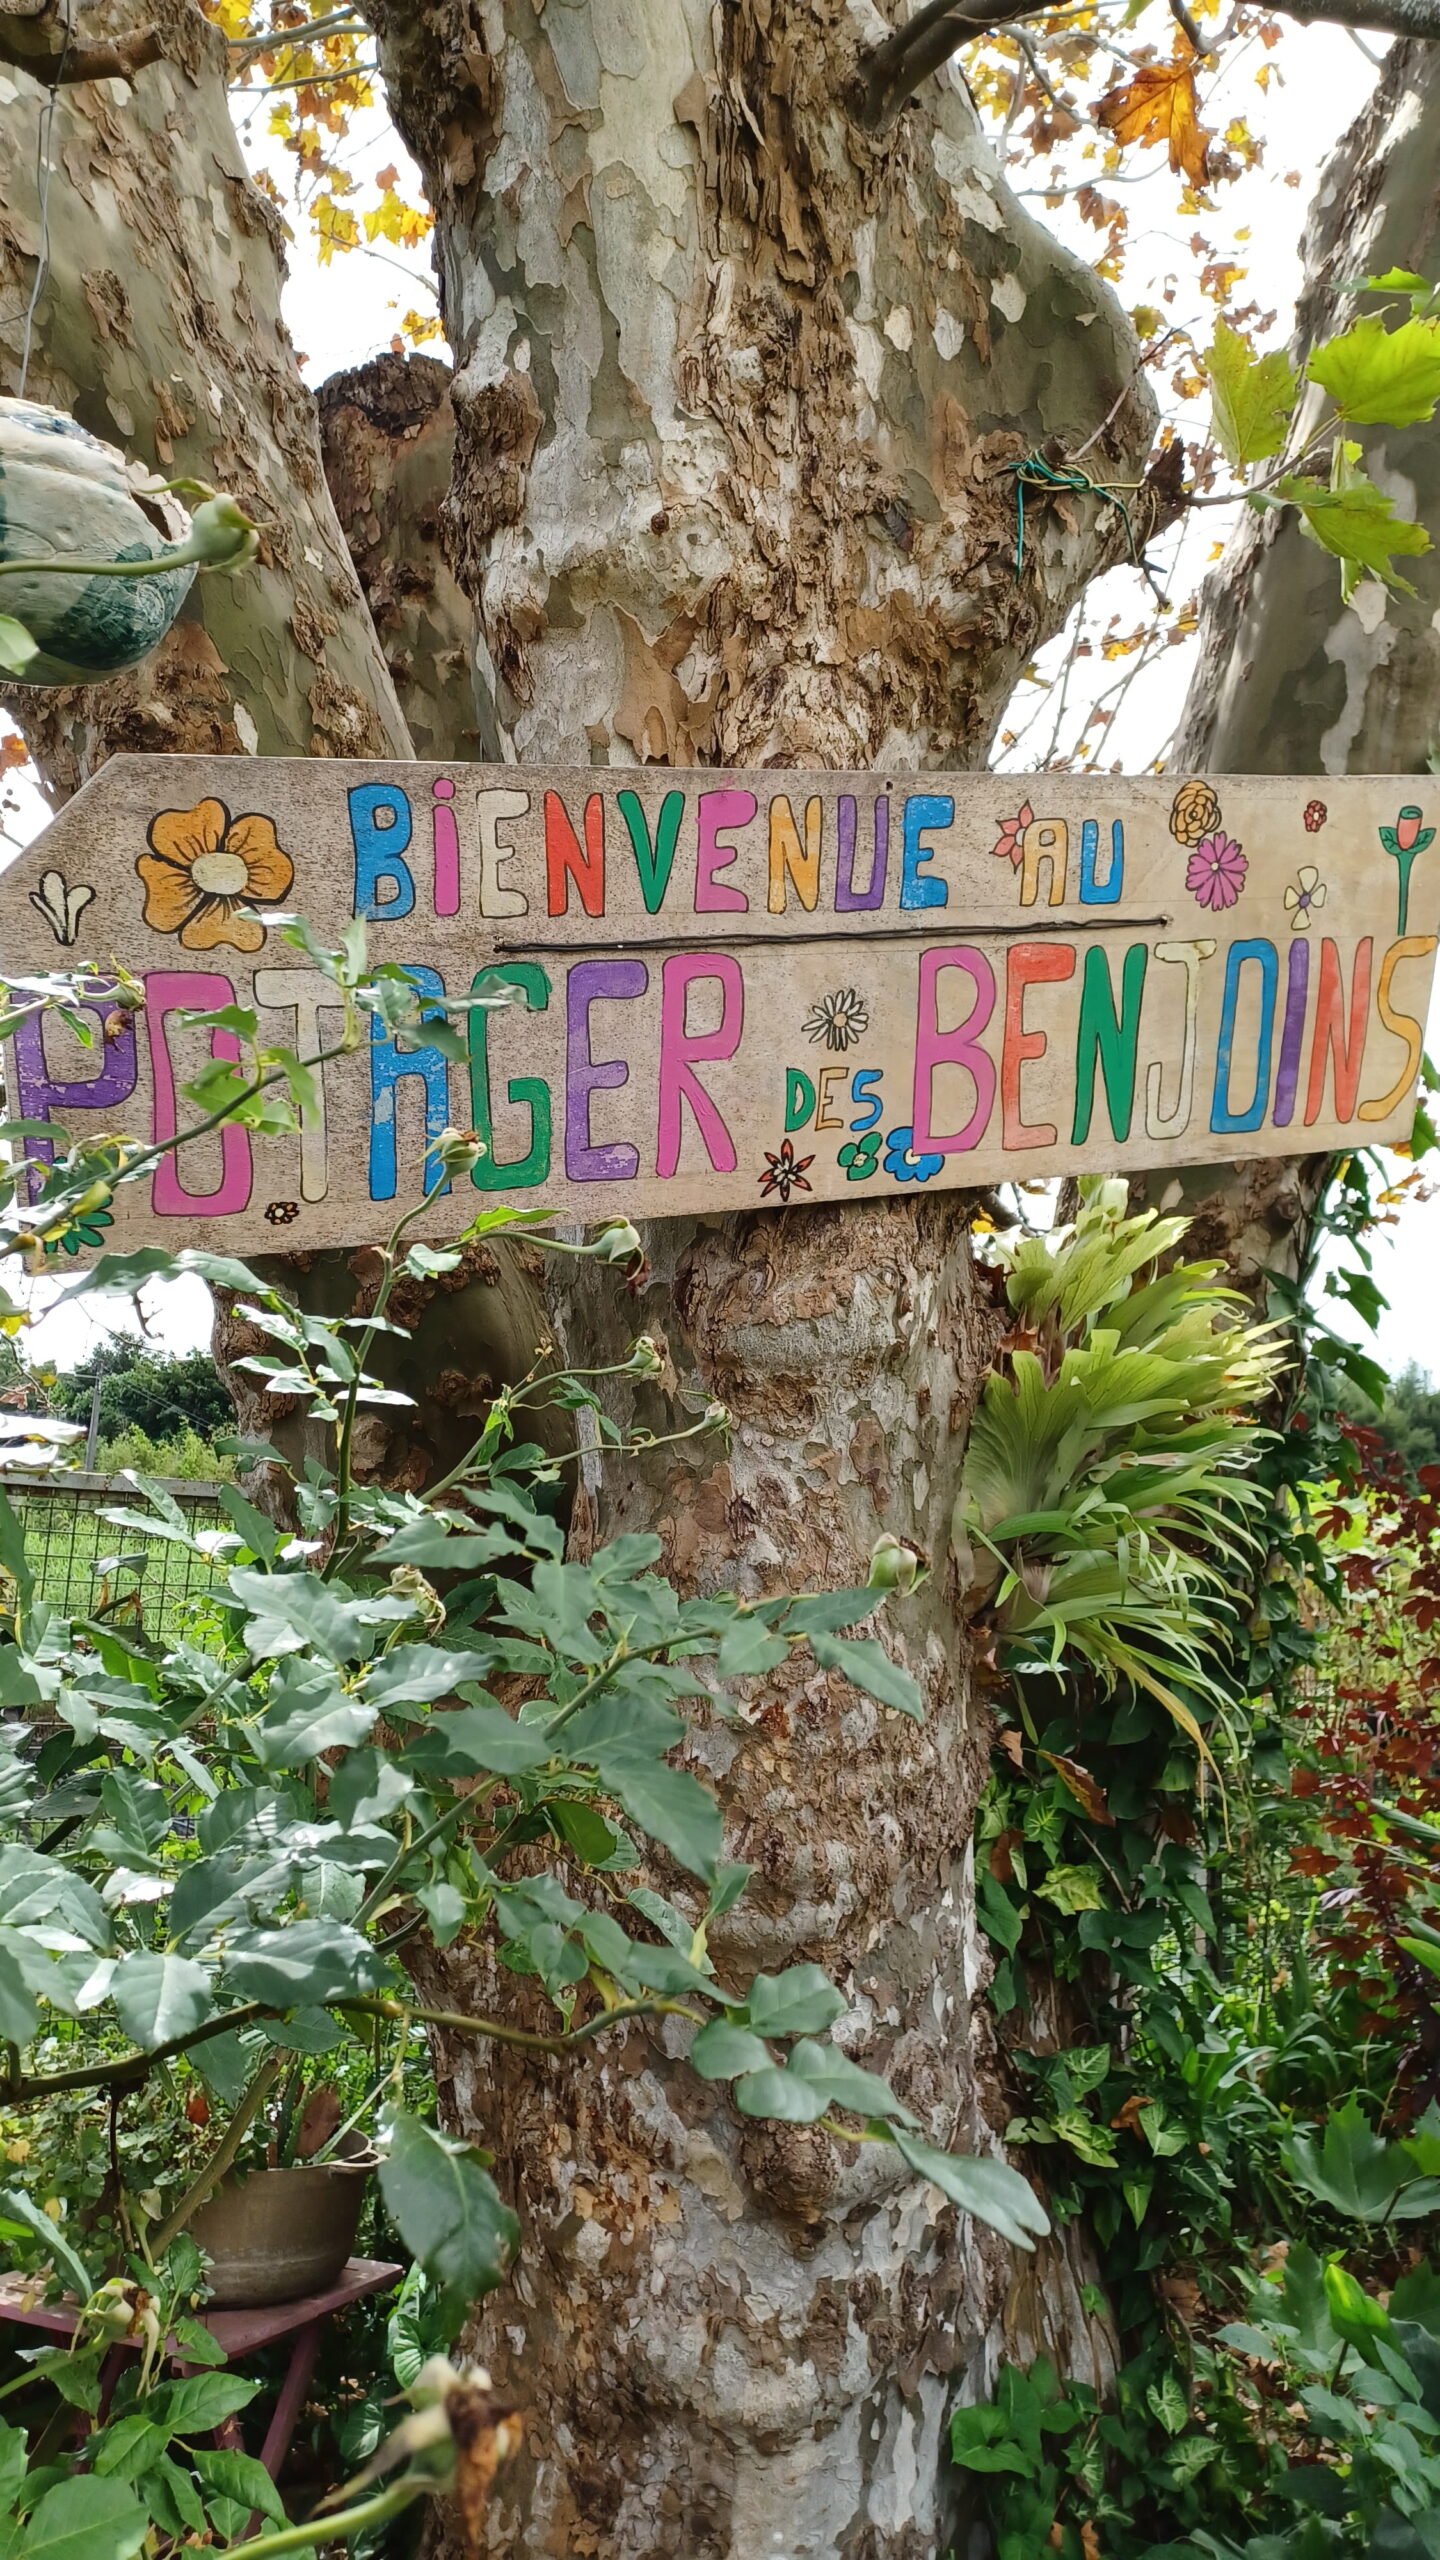 BiENVENUE AU
POTAGER DES BENJOINS